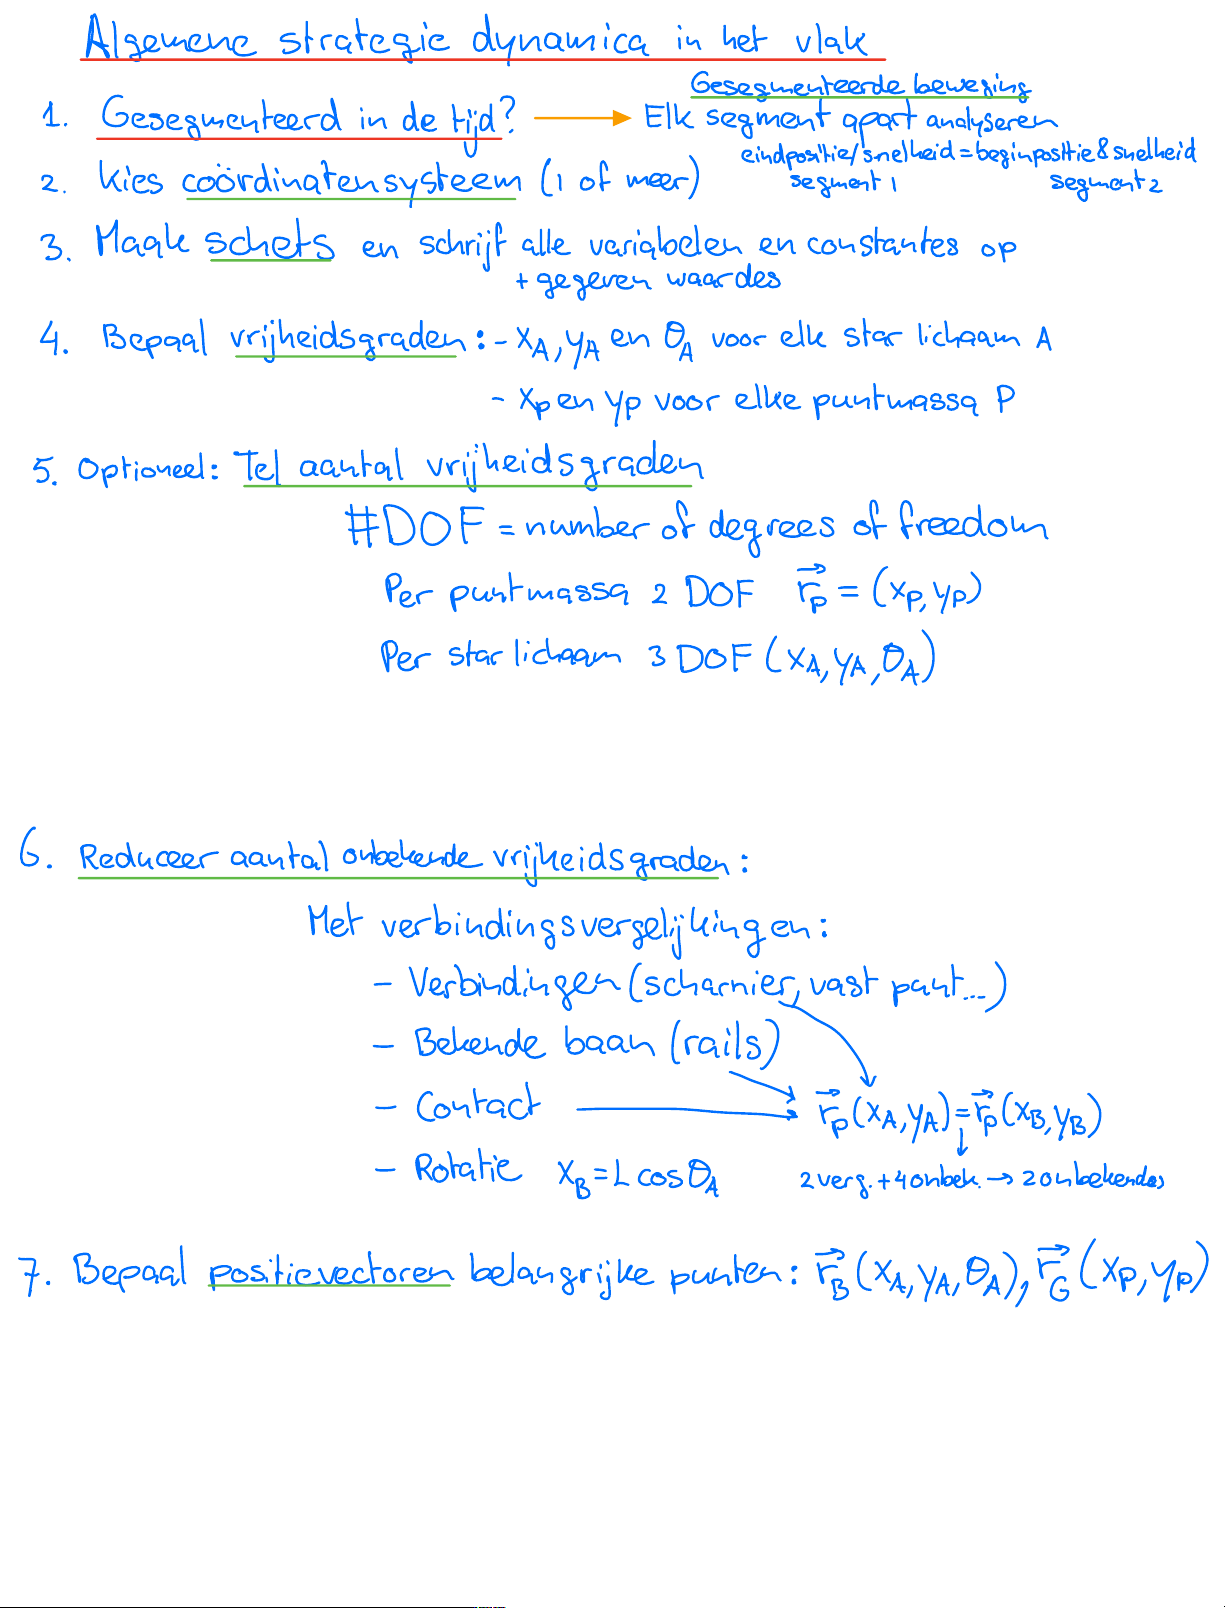 Algemene strategie dynamica in het vlak
Gesegmenteerde beweging
1. Gesegmenteerd in de tijd? → Elk segment apart analyseren
eindpositie/snelheid = beginpositie & snelheid
segment 1 segment 2
2. Kies coördinatensysteem (1 of meer)
3. Maak schets en schrijf alle variabelen en constantes op
+ gegeven waardes
4. Bepaal vrijheidsgraden: - x_A, y_A en θ_A voor elk star lichaam A
- x_P en y_P voor elke puntmassa P
5. Optioneel: Tel aantal vrijheidsgraden
#DOF = number of degrees of freedom
Per puntmassa 2 DOF r⃗_P = (x_P, y_P)
Per star lichaam 3 DOF (x_A, y_A, θ_A)
6. Reduceer aantal onbekende vrijheidsgraden:
Met verbindingsvergelijkingen:
- Verbindingen (scharnier, vast punt...)
- Bekende baan (rails)
- Contact → : r⃗_P(x_A, y_A) = r⃗_P(x_B, y_B)
- Rotatie x_B = L cos θ_A 2 verg. + 4 onbek. → 2 onbekendes
7. Bepaal positievectoren belangrijke punten: r⃗_B(x_A, y_A, θ_A), r⃗_G(x_P, y_P)